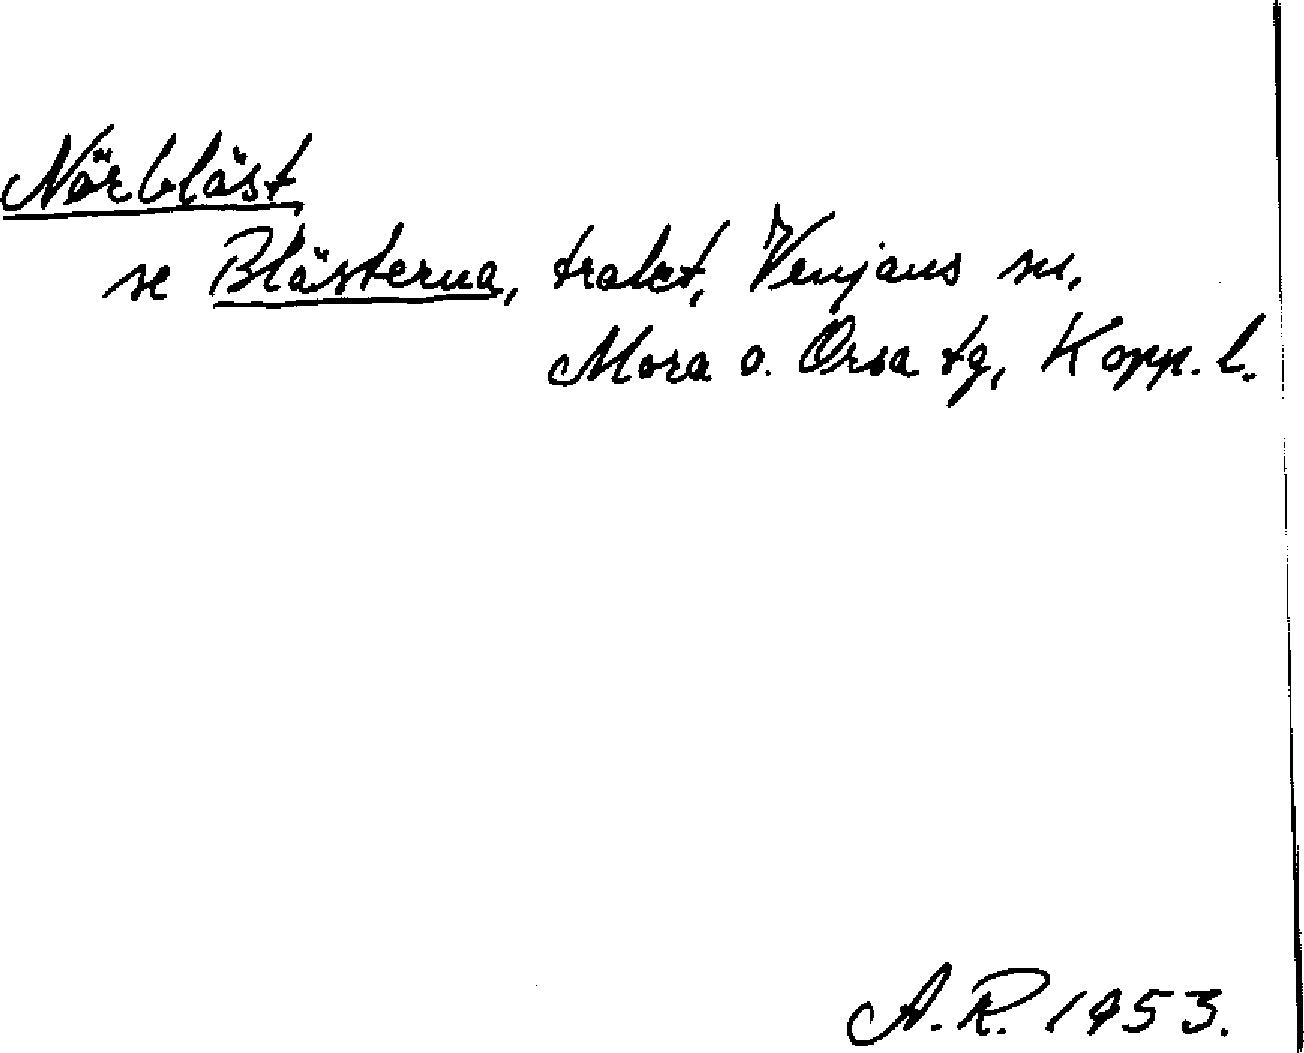 Närbläst
se Blästerna, trakt, Venjans sn,
Mora o. Orsa tg, Kopp. l.
A.R. 1953.